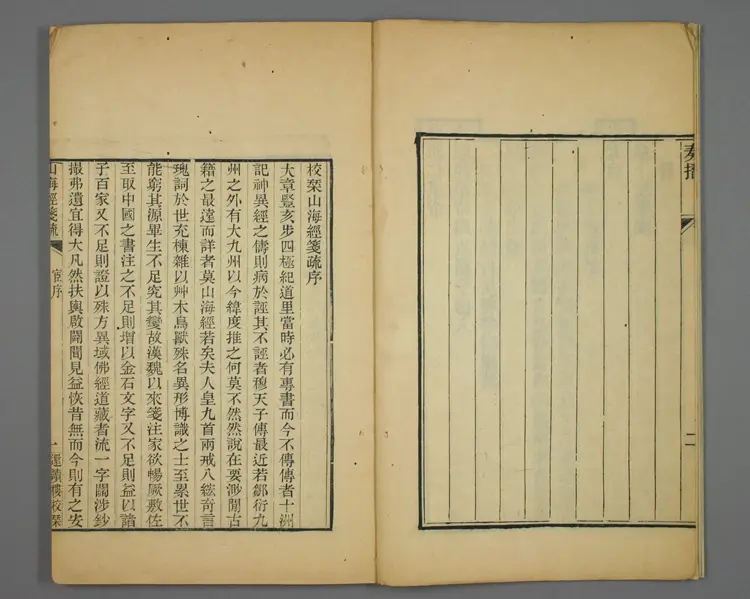 奏摺
二
校栞山海經箋疏序
大章豎亥步四極紀道里當時必有專書而今不傳傳者十洲
記神異經之儔則病於誣其不誣者穆天子傳最近若鄒衍九
州之外有大九州以今緯度推之何莫不然然說在要渺聞古
籍之最達而詳者莫山海經若矣夫人皇九首兩戒八紘奇言
瑰詞於世充棟雜以艸木鳥獸殊名異形博識之士至累世不
能窮其源畢生不足究其變故漢魏以來箋注家欲暢厥敷佐
至取中國之書注之不足則增以金石文字又不足則益以諸
子百家又不足則證以殊方異域佛經道藏者流一字闕涉鈔
撮弗遺宜得大凡然扶輿啟闢聞見益恢昔無而今則有之安
山海經箋疏
序
一
還讀樓校栞